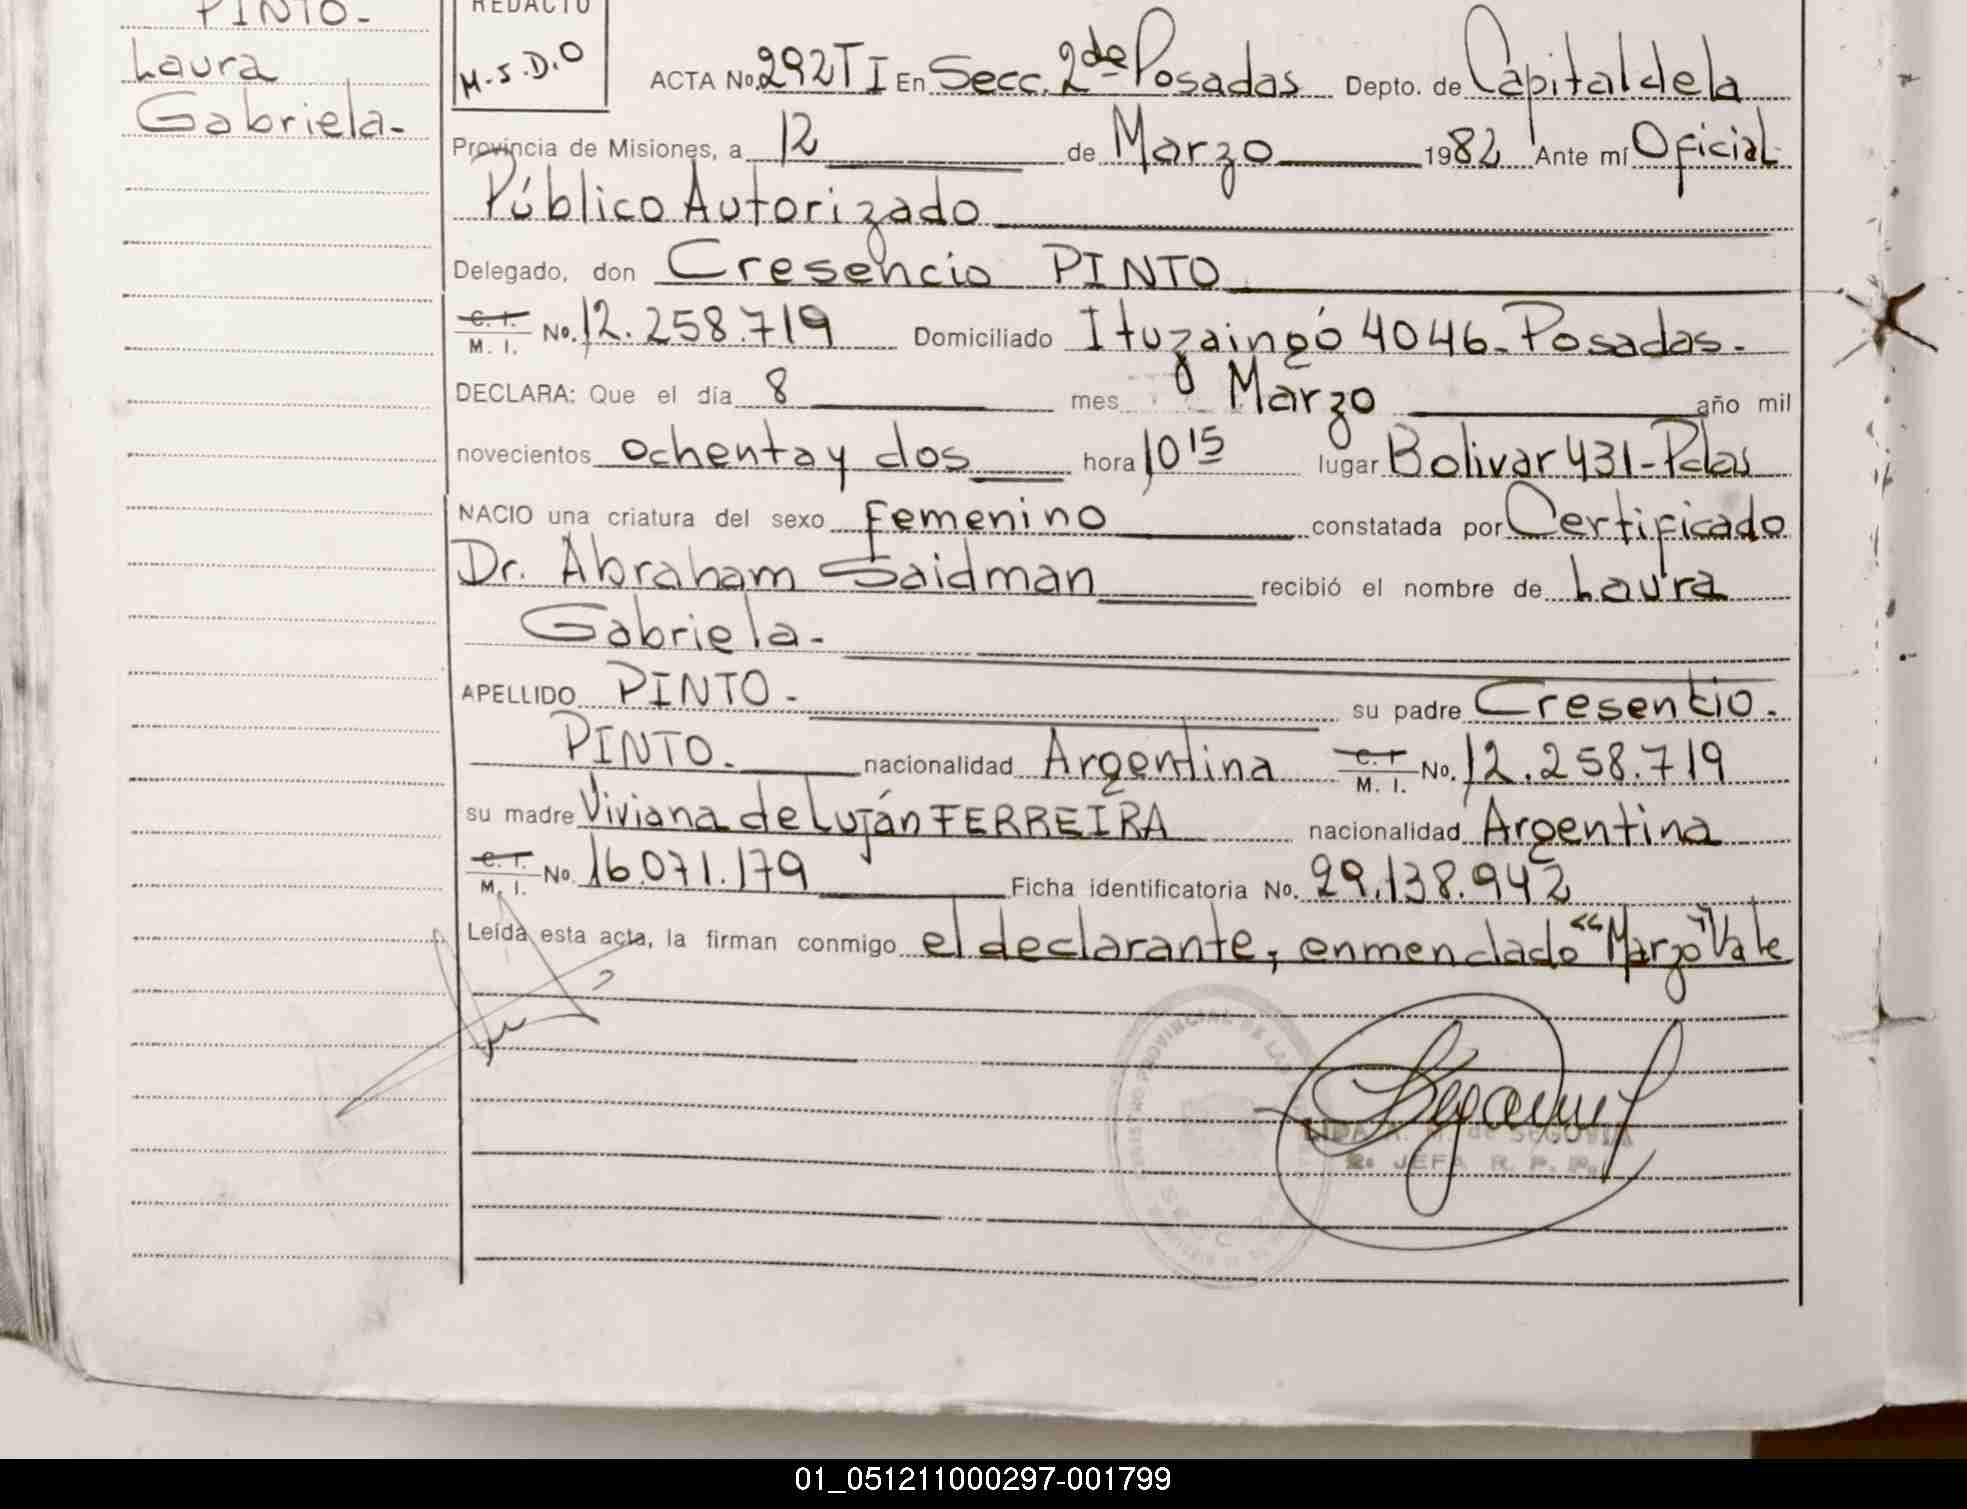 PINTO.-
Laura
Gabriela-
REDACTO
M.S.D.O
ACTA No. 292 T I En Secc. 2da Posadas Depto. de Capital de la
Provincia de Misiones, a 12 de Marzo 1982 Ante mí Oficial
Público Autorizado
Delegado, don Cresencio PINTO
C. I. M. I. No. 12.258.719 Domiciliado Ituzaingó 4046- Posadas.-
DECLARA: Que el día 8 mes Marzo año mil
novecientos ochenta y dos hora 10 15 lugar Bolivar 431-Pdas
NACIO una criatura del sexo Femenino constatada por Certificado
Dr. Abraham Saidman recibió el nombre de Laura
Gabriela.-
APELLIDO PINTO.- su padre Cresencio.
PINTO. nacionalidad Argentina C. I. M. I. No. 12.258.719
su madre Viviana de Luján FERREIRA nacionalidad Argentina
C. I. M. I. No. 16.071.179 Ficha identificatoria No. 29.138.942
Leída esta acta, la firman conmigo el declarante, enmendado "Marzo" Vale
REGISTRO PROVINCIAL DE LAS
A. M. de SEGOVIA
JEFA R. P. P.
SECC. 2da
01_051211000297-001799